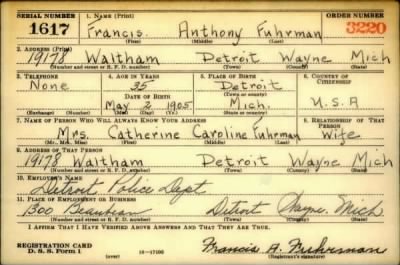 SERIAL NUMBER 1. NAME (Print) ORDER NUMBER
1617 Francis Anthony Fuhrman 3220
(First) (Middle) (Last)
2. ADDRESS (Print)
19178 Waltham Detroit Wayne Mich
(Number and street or R. F. D. number) (Town) (County) (State)
3. TELEPHONE 4. AGE IN YEARS 5. PLACE OF BIRTH 6. COUNTRY OF CITIZENSHIP
None 35 Detroit
DATE OF BIRTH (Town or county)
May 2 1905 Mich. U.S.A
(Exchange) (Number) (Mo.) (Day) (Yr.) (State or country)
7. NAME OF PERSON WHO WILL ALWAYS KNOW YOUR ADDRESS 8. RELATIONSHIP OF THAT PERSON
Mrs. Catherine Caroline Fuhrman Wife
(Mr., Mrs., Miss) (First) (Middle) (Last)
9. ADDRESS OF THAT PERSON
19178 Waltham Detroit Wayne Mich
(Number and street or R. F. D. number) (Town) (County) (State)
10. EMPLOYER'S NAME
Detroit Police Dept
11. PLACE OF EMPLOYMENT OR BUSINESS
1300 Beaubien Detroit Wayne. Mich
(Number and street or R. F. D. number) (Town) (County) (State)
I AFFIRM THAT I HAVE VERIFIED ABOVE ANSWERS AND THAT THEY ARE TRUE.
REGISTRATION CARD
D. S. S. Form 1 (over) Francis A. Fuhrman
(Registrant's signature)